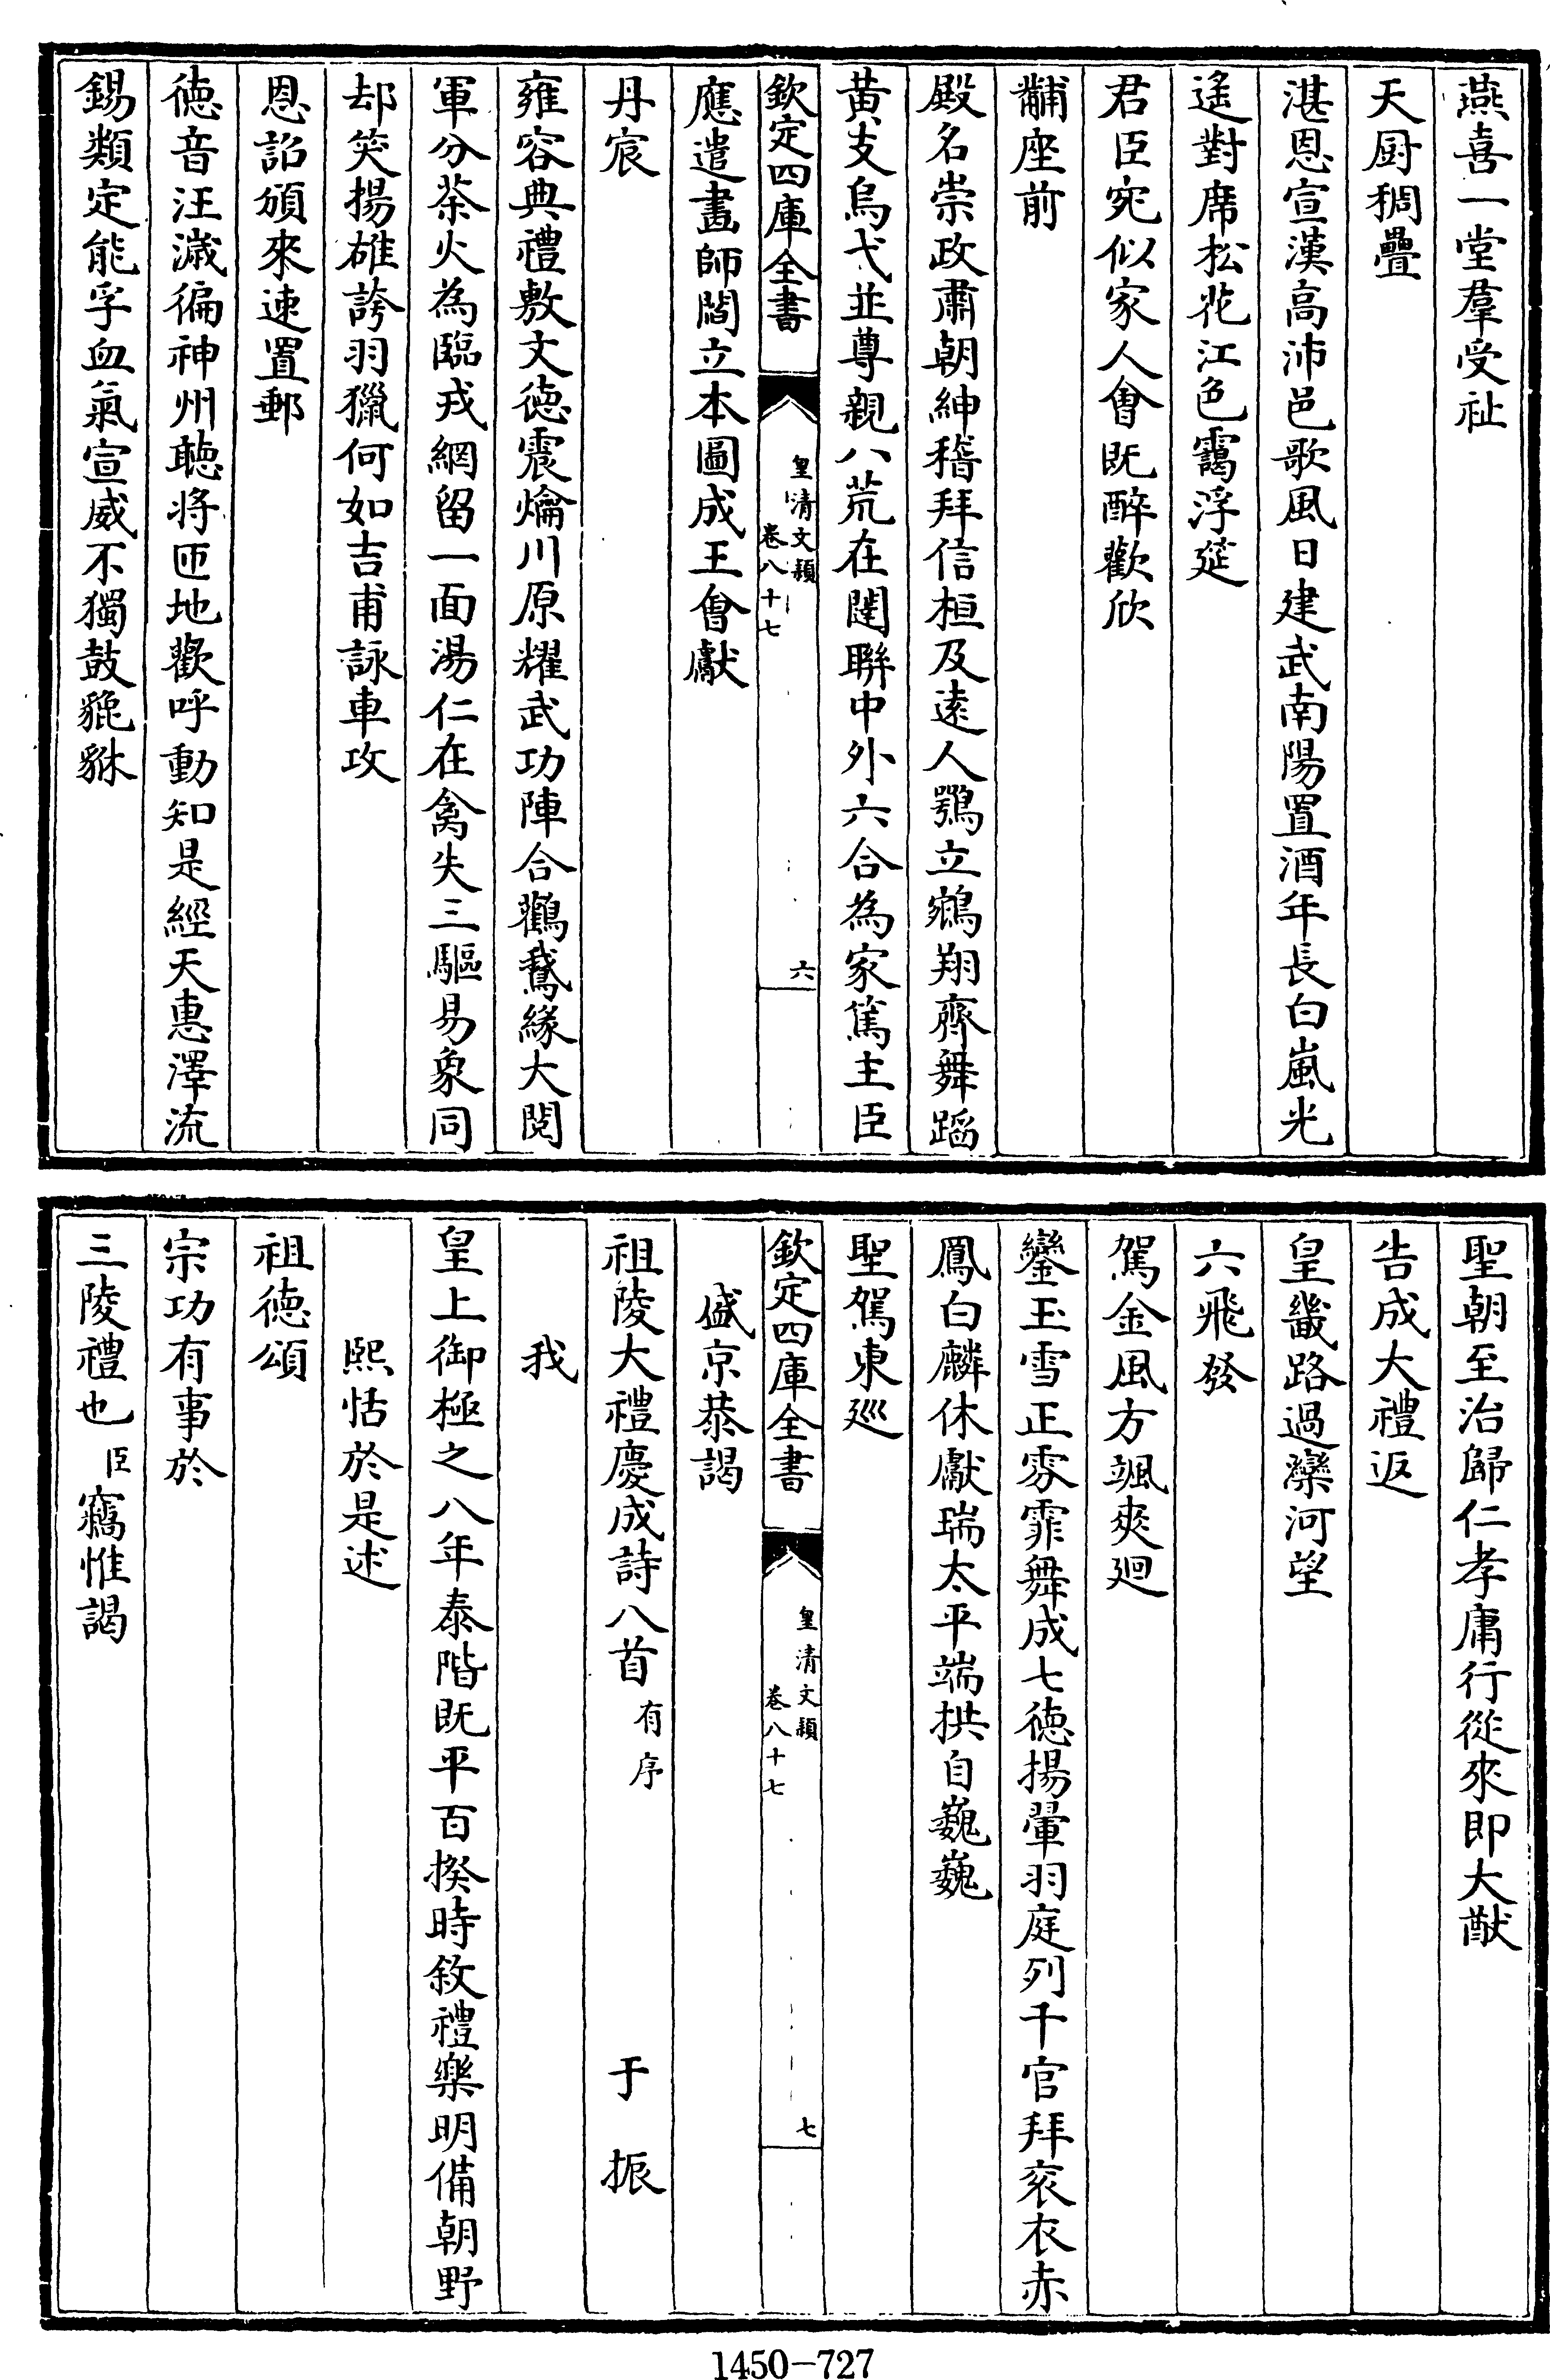 燕喜一堂羣受祉
天厨稠疊
湛恩宣漢高沛邑歌風日建武南陽置酒年長白嵐光
遙對席松花江色靄浮筵
君臣宛似家人會既醉歡欣
黼座前
殿名崇政肅朝紳稽拜信桓及遠人鶚立鵷翔齊舞蹈
黃支烏弋並尊親八荒在闥聯中外六合為家篤主臣
欽定四庫全書
皇清文穎
卷八十七
六
應遣畫師閻立本圖成王會獻
丹宸
雍容典禮敷文德震爚川原耀武功陣合鸛鵞緣大閱
軍分茶火為臨戎網留一面湯仁在禽失三驅易象同
却笑揚雄誇羽獵何如吉甫詠車攻
恩詔頒來速置郵
德音汪濊徧神州聽將匝地歡呼動知是經天惠澤流
錫類定能孚血氣宣威不獨鼓貔貅
聖朝至治歸仁孝庸行從來即大猷
告成大禮返
皇畿路過灤河望
六飛發
駕金風方颯爽迴
鑾玉雪正雰霏舞成七德揚翬羽庭列千官拜衮衣赤
鳳白麟休獻瑞太平端拱自巍巍
聖駕東巡
欽定四庫全書
皇清文穎
卷八十七
七
盛京恭謁
祖陵大禮慶成詩八首 有序 于振
我
皇上御極之八年泰階既平百揆時敘禮樂明備朝野
熙恬於是述
祖德頌
宗功有事於
三陵禮也臣竊惟謁
1450-727